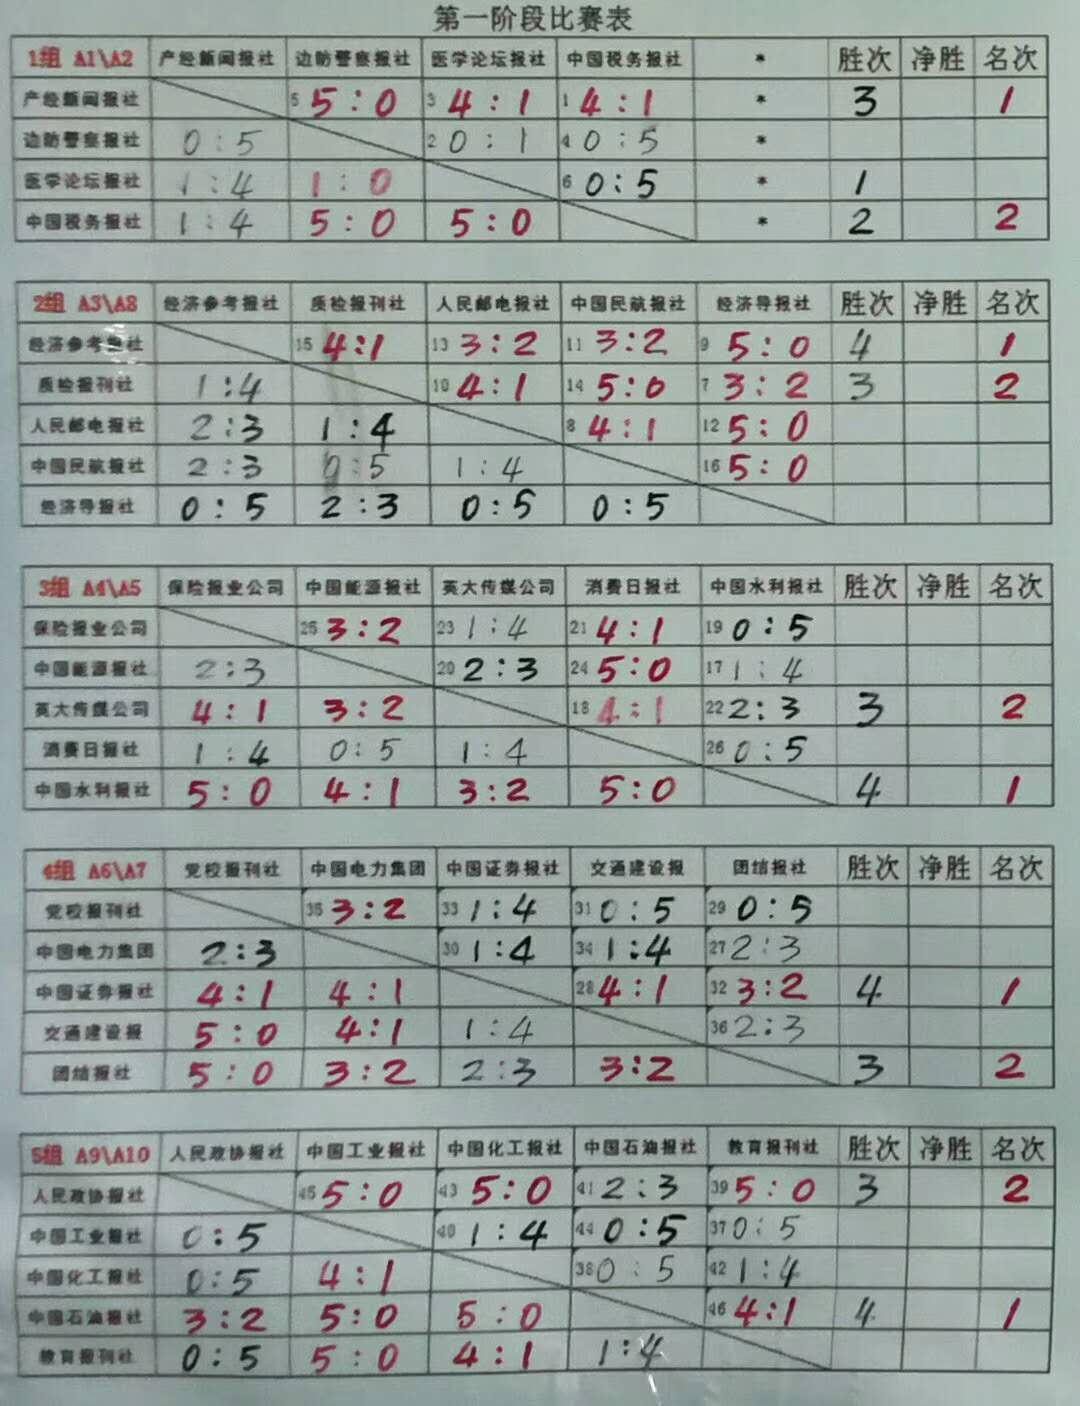 第一阶段比赛表
1组 A1\A2 产经新闻报社 边防警察报社 医学论坛报社 中国税务报社 * 胜次 净胜 名次
产经新闻报社 5 5:0 3 4:1 1 4:1 * 3 1
边防警察报社 0:5 2 0:1 4 0:5 *
医学论坛报社 1:4 1:0 6 0:5 * 1
中国税务报社 1:4 5:0 5:0 * 2 2
2组 A3\A8 经济参考报社 质检报刊社 人民邮电报社 中国民航报社 经济导报社 胜次 净胜 名次
经济参考报社 15 4:1 13 3:2 11 3:2 9 5:0 4 1
质检报刊社 1:4 10 4:1 14 5:0 7 3:2 3 2
人民邮电报社 2:3 1:4 8 4:1 12 5:0
中国民航报社 2:3 0:5 1:4 16 5:0
经济导报社 0:5 2:3 0:5 0:5
3组 A4\A5 保险报业公司 中国能源报社 英大传媒公司 消费日报社 中国水利报社 胜次 净胜 名次
保险报业公司 25 3:2 23 1:4 21 4:1 19 0:5
中国能源报社 2:3 20 2:3 24 5:0 17 1:4
英大传媒公司 4:1 3:2 18 4:1 22 2:3 3 2
消费日报社 1:4 0:5 1:4 26 0:5
中国水利报社 5:0 4:1 3:2 5:0 4 1
4组 A6\A7 党校报刊社 中国电力集团 中国证券报社 交通建设报 团结报社 胜次 净胜 名次
党校报刊社 35 3:2 33 1:4 31 0:5 29 0:5
中国电力集团 2:3 30 1:4 34 1:4 27 2:3
中国证券报社 4:1 4:1 28 4:1 32 3:2 4 1
交通建设报 5:0 4:1 1:4 36 2:3
团结报社 5:0 3:2 2:3 3:2 3 2
5组 A9\A10 人民政协报社 中国工业报社 中国化工报社 中国石油报社 教育报刊社 胜次 净胜 名次
人民政协报社 45 5:0 43 5:0 41 2:3 39 5:0 3 2
中国工业报社 0:5 40 1:4 44 0:5 37 0:5
中国化工报社 0:5 4:1 38 0:5 42 1:4
中国石油报社 3:2 5:0 5:0 46 4:1 4 1
教育报刊社 0:5 5:0 4:1 1:4